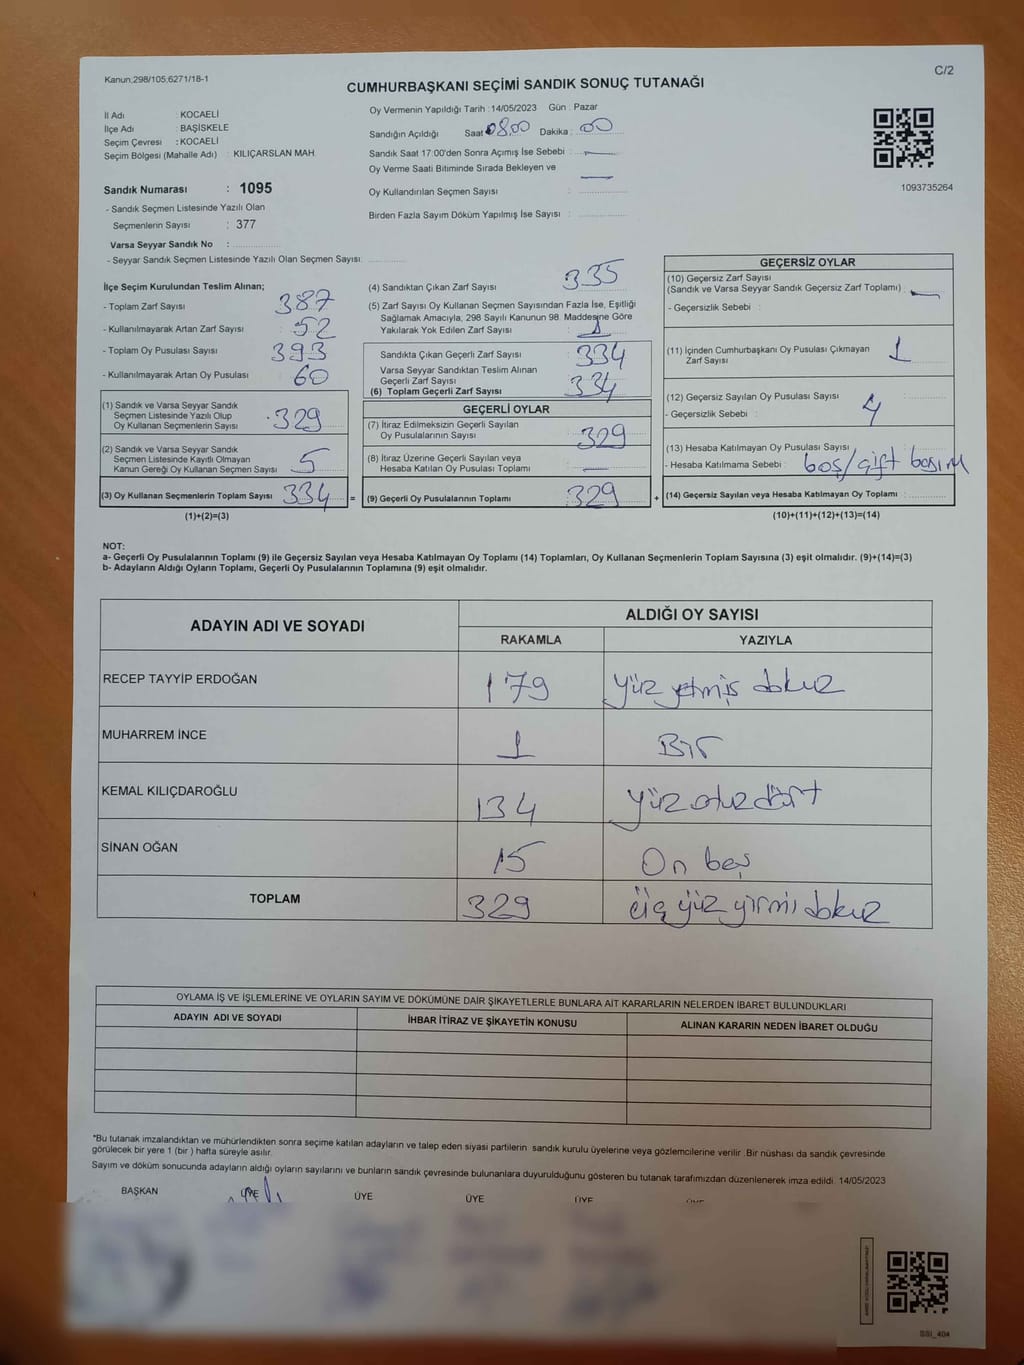 Kanun:298/105;6271/18-1
C/2
CUMHURBAŞKANI SEÇİMİ SANDIK SONUÇ TUTANAĞI
İl Adı : KOCAELİ
İlçe Adı : BAŞİSKELE
Seçim Çevresi : KOCAELİ
Seçim Bölgesi (Mahalle Adı) : KILIÇARSLAN MAH.
Sandık Numarası : 1095
- Sandık Seçmen Listesinde Yazılı Olan
Seçmenlerin Sayısı : 377
Varsa Seyyar Sandık No :
- Seyyar Sandık Seçmen Listesinde Yazılı Olan Seçmen Sayısı:
Oy Vermenin Yapıldığı Tarih : 14/05/2023 Gün : Pazar
Sandığın Açıldığı Saat 08.00 Dakika : 00
Sandık Saat 17:00'den Sonra Açımış İse Sebebi :
Oy Verme Saati Bitiminde Sırada Bekleyen ve
Oy Kullandırılan Seçmen Sayısı :
Birden Fazla Sayım Döküm Yapılmış İse Sayısı :
1093735264
İlçe Seçim Kurulundan Teslim Alınan;
- Toplam Zarf Sayısı : 387
- Kullanılmayarak Artan Zarf Sayısı : 52
- Toplam Oy Pusulası Sayısı : 393
- Kullanılmayarak Artan Oy Pusulası : 60
(1) Sandık ve Varsa Seyyar Sandık
Seçmen Listesinde Yazılı Olup
Oy Kullanan Seçmenlerin Sayısı : 329
(2) Sandık ve Varsa Seyyar Sandık
Seçmen Listesinde Kayıtlı Olmayan
Kanun Gereği Oy Kullanan Seçmen Sayısı : 5
(3) Oy Kullanan Seçmenlerin Toplam Sayısı : 334 =
(1)+(2)=(3)
(4) Sandıktan Çıkan Zarf Sayısı : 335
(5) Zarf Sayısı Oy Kullanan Seçmen Sayısından Fazla İse, Eşitliği
Sağlamak Amacıyla, 298 Sayılı Kanunun 98. Maddesine Göre
Yakılarak Yok Edilen Zarf Sayısı : 1
Sandıkta Çıkan Geçerli Zarf Sayısı : 334
Varsa Seyyar Sandıktan Teslim Alınan
Geçerli Zarf Sayısı :
(6) Toplam Geçerli Zarf Sayısı : 334
GEÇERLİ OYLAR
(7) İtiraz Edilmeksizin Geçerli Sayılan
Oy Pusulalarının Sayısı : 329
(8) İtiraz Üzerine Geçerli Sayılan veya
Hesaba Katılan Oy Pusulası Toplamı :
(9) Geçerli Oy Pusulalarının Toplamı : 329 +
GEÇERSİZ OYLAR
(10) Geçersiz Zarf Sayısı
(Sandık ve Varsa Seyyar Sandık Geçersiz Zarf Toplamı) :
- Geçersizlik Sebebi :
(11) İçinden Cumhurbaşkanı Oy Pusulası Çıkmayan
Zarf Sayısı : 1
(12) Geçersiz Sayılan Oy Pusulası Sayısı : 4
- Geçersizlik Sebebi :
(13) Hesaba Katılmayan Oy Pusulası Sayısı :
- Hesaba Katılmama Sebebi : boş/çift basım
(14) Geçersiz Sayılan veya Hesaba Katılmayan Oy Toplamı :
(10)+(11)+(12)+(13)=(14)
NOT:
a- Geçerli Oy Pusulalarının Toplamı (9) ile Geçersiz Sayılan veya Hesaba Katılmayan Oy Toplamı (14) Toplamları, Oy Kullanan Seçmenlerin Toplam Sayısına (3) eşit olmalıdır. (9)+(14)=(3)
b- Adayların Aldığı Oyların Toplamı, Geçerli Oy Pusulalarının Toplamına (9) eşit olmalıdır.
ADAYIN ADI VE SOYADI ALDIĞI OY SAYISI
RAKAMLA YAZIYLA
RECEP TAYYİP ERDOĞAN 179 yüz yetmiş dokuz
MUHARREM İNCE 1 Bir
KEMAL KILIÇDAROĞLU 134 yüz otuz dört
SİNAN OĞAN 15 On beş
TOPLAM 329 üç yüz yirmi dokuz
OYLAMA İŞ VE İŞLEMLERİNE VE OYLARIN SAYIM VE DÖKÜMÜNE DAİR ŞİKAYETLERLE BUNLARA AİT KARARLARIN NELERDEN İBARET BULUNDUKLARI
ADAYIN ADI VE SOYADI İHBAR İTİRAZ VE ŞİKAYETİN KONUSU ALINAN KARARIN NEDEN İBARET OLDUĞU
*Bu tutanak imzalandıktan ve mühürlendikten sonra seçime katılan adayların ve talep eden siyasi partilerin sandık kurulu üyelerine veya gözlemcilerine verilir. Bir nüshası da sandık çevresinde
görülecek bir yere 1 (bir ) hafta süreyle asılır.
Sayım ve döküm sonucunda adayların aldığı oyların sayılarını ve bunların sandık çevresinde bulunanlara duyurulduğunu gösteren bu tutanak tarafımızdan düzenlenerek imza edildi. 14/05/2023
BAŞKAN ÜYE ÜYE ÜYE ÜYE ÜYE
SSI_404